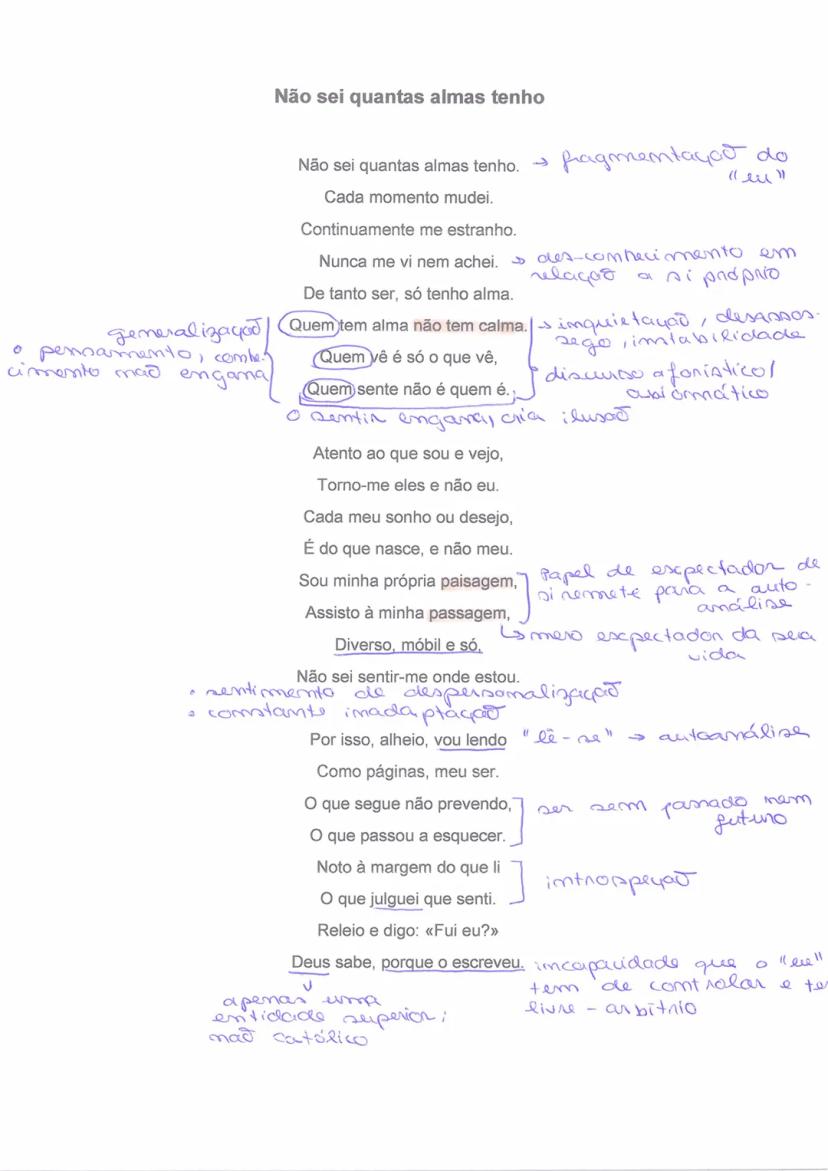 Não sei quantas almas tenho
Não sei quantas almas tenho. → fragmentação do
"eu"
Cada momento mudei.
Continuamente me estranho.
Nunca me vi nem achei. → des-conhecimento em
relação a si próprio
De tanto ser, só tenho alma.
generalização
o pensamento, conhe-
cimento não engana
Quem tem alma não tem calma. → inquietação, desassos-
sego, instabilidade
Quem vê é só o que vê,
Quem sente não é quem é.
discurso aforístico/
axiomático
o sentir engana, cria ilusão
Atento ao que sou e vejo,
Torno-me eles e não eu.
Cada meu sonho ou desejo,
É do que nasce, e não meu.
Sou minha própria paisagem,
Assisto à minha passagem,
Papel de espectador de
si remete para a auto-
análise
↳ mero espectador da sua
vida
Diverso, móbil e só,
Não sei sentir-me onde estou.
• sentimento de despersonalização
• constante inadaptação
Por isso, alheio, vou lendo "lê-se" → autoanálise
Como páginas, meu ser.
O que segue não prevendo,
O que passou a esquecer.
ser sem passado nem
futuro
Noto à margem do que li
O que julguei que senti.
introspeção
Releio e digo: «Fui eu?»
Deus sabe, porque o escreveu. incapacidade que o "eu"
tem de controlar e te
livre-arbítrio
apenas uma
entidade superior;
não católico